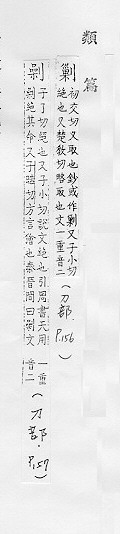 類
篇
剿
初交切又取也鈔或作剿又子小切
絶也又楚教切略取也文一重音二
(刀部.
P.156)
剿
子了切絶也又子小切説文絶也引周書天用
剿絶其命又子踐切方言儈也秦晉間曰剿文
一重
音二
(刀部.
P.157)